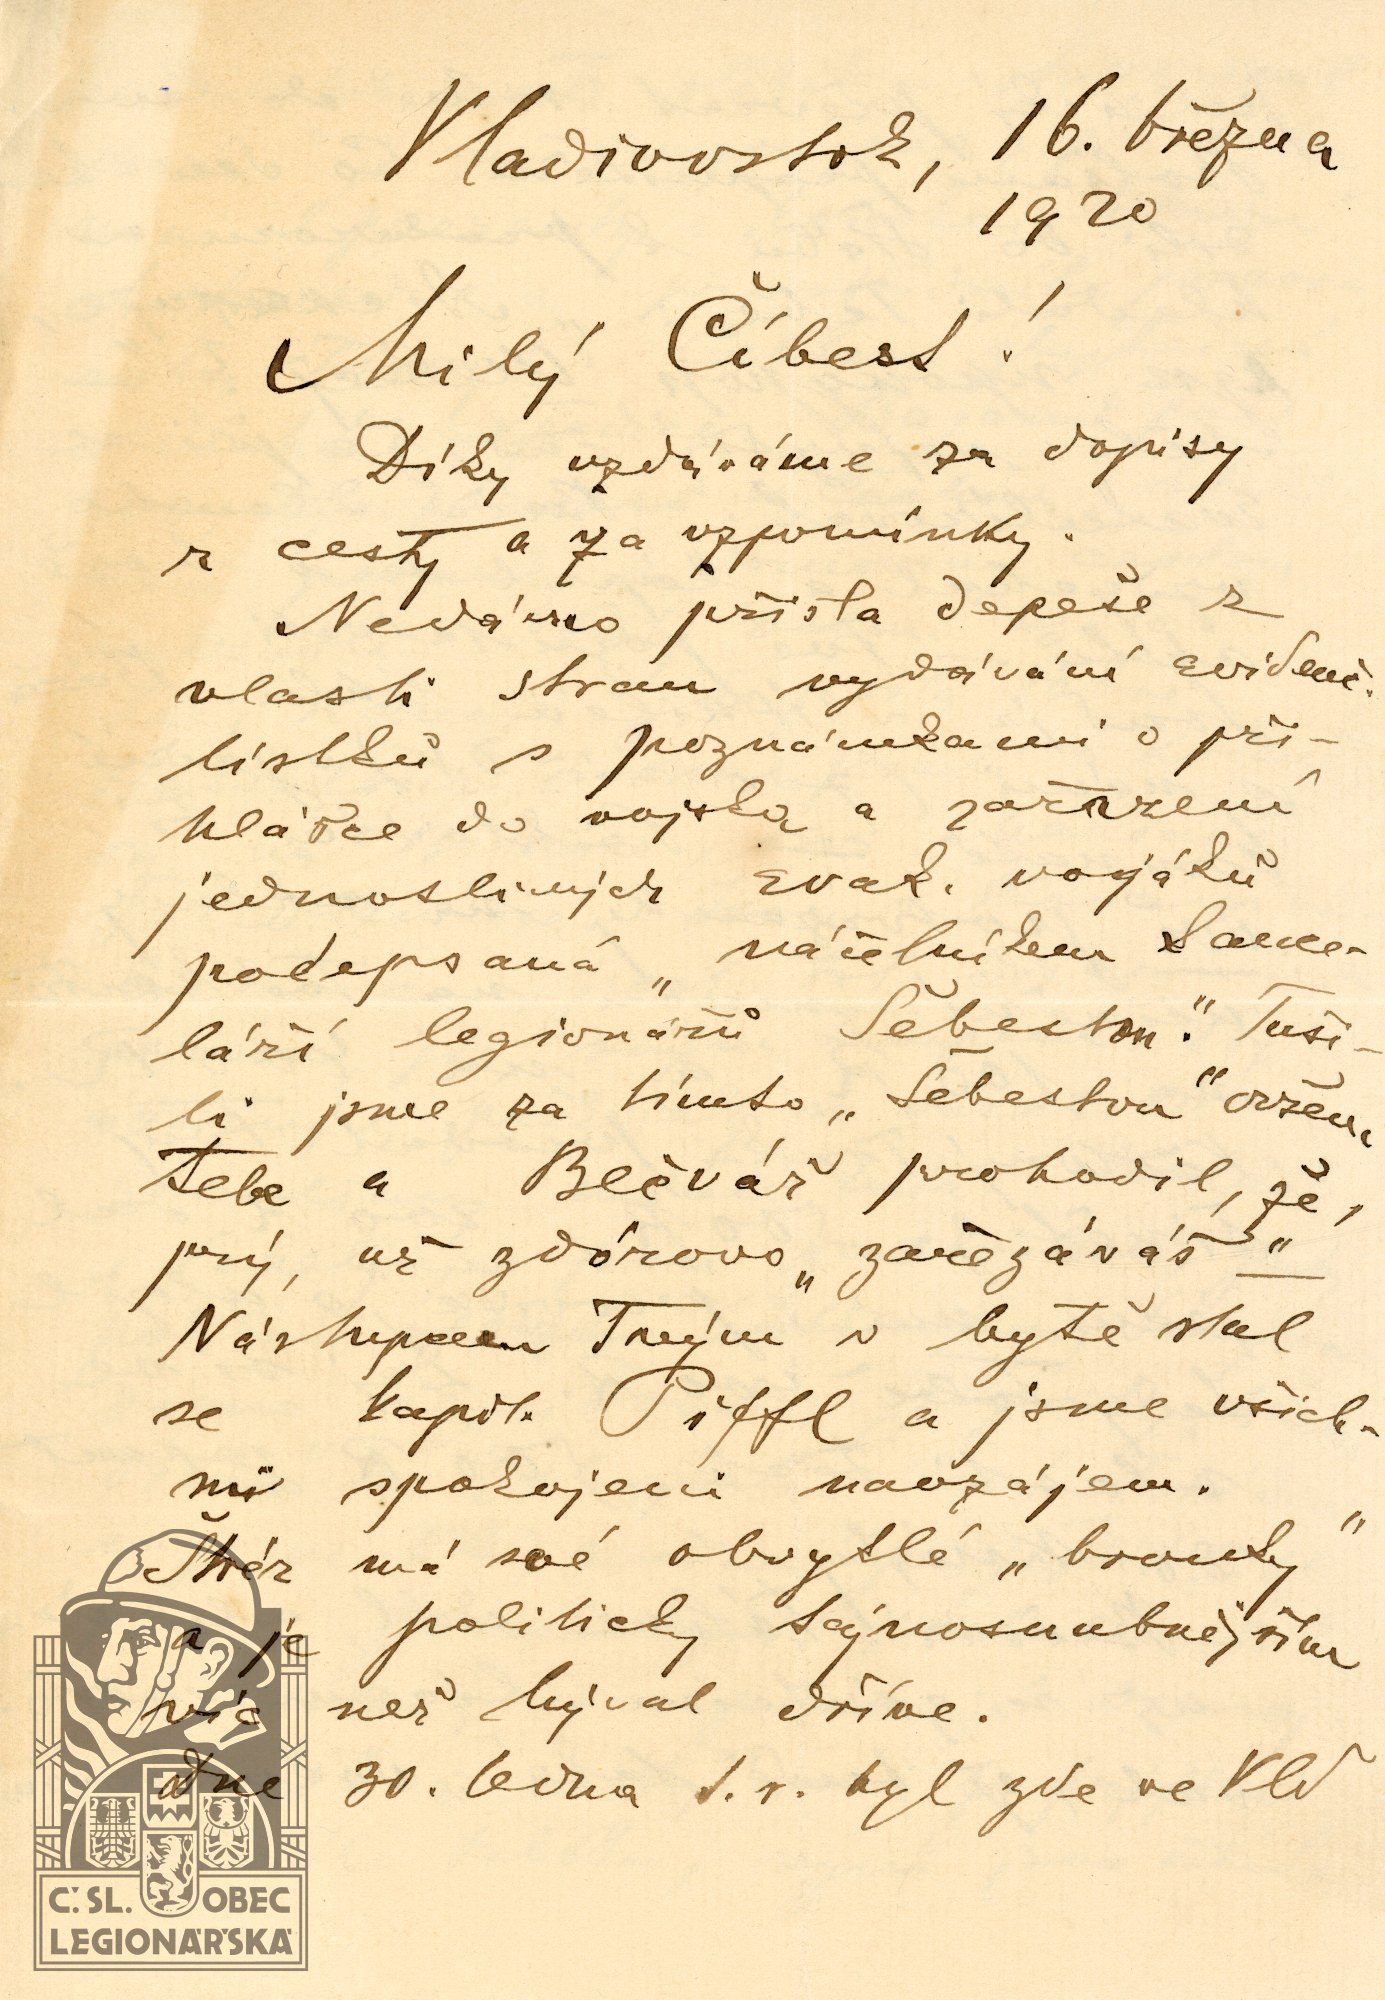 Vladivostok, 16. března
1920
Milý Číbert!
Díky vzdáváme za dopisy
z cesty a za vzpomínky.
Nedávno přišla depeše z
vlasti stran vydávání evidenč.
lístků s poznámkami o při-
hlášce do vojska a zařazení
jednotlivých evak. vojáků
podepsaná „náčelníkem kance-
láří legionářů Šebestou“. Tuši-
li jsme za tímto „Šebestou“ ovšem
Tebe a Bečvář prohodil, že,
prý, už zdórovo „zařezáváš“
Nástupcem Tvým v bytě stal
se kapit. Piffl a jsme všich-
ni spokojeni navzájem.
má své obvyklé „brouky“
a je politicky tajnosnubnějším
víc než býval dříve.
Dne 30. ledna t. r. byl zde ve Vld
Č.SL. OBEC
LEGIONÁŘSKÁ